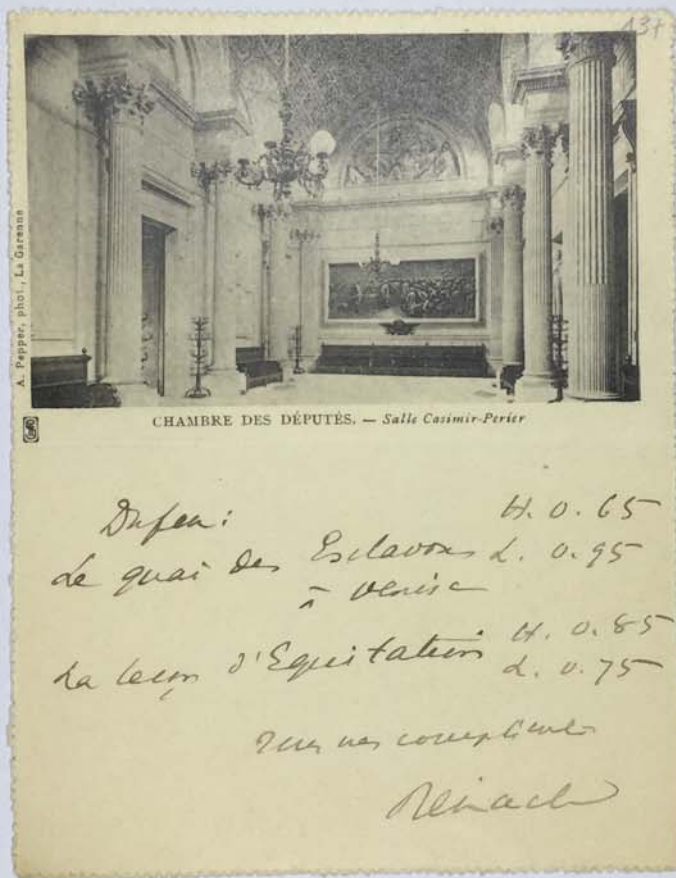 137
A. Pepper, phot., La Garenne
CHAMBRE DES DÉPUTÉS. — Salle Casimir-Perier
H. 0.65
Le quai des Esclavons L. 0.95
à Venise
La leçon d'Equitation H. 0.85
L. 0.75
mes compliments
Reinach